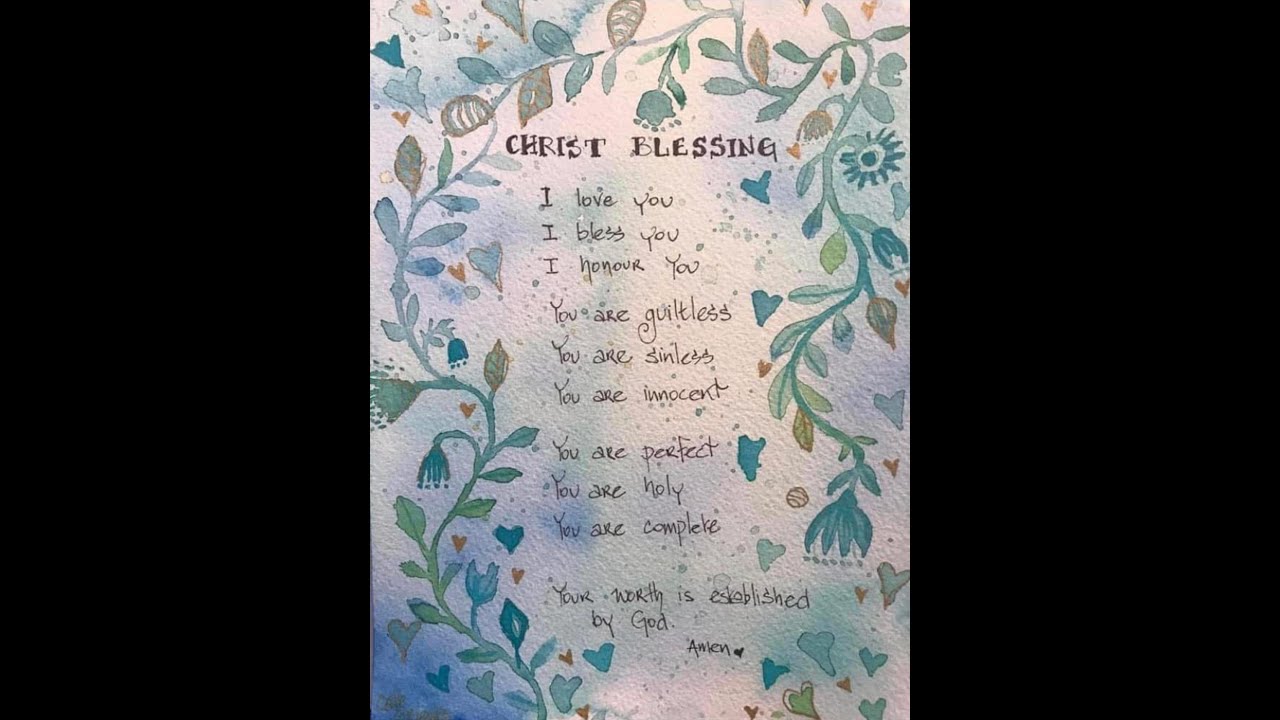 CHRIST BLESSING
I love you
I bless you
I honour You
You are guiltless
You are sinless
You are innocent
You are perfect
You are holy
You are complete
Your worth is established
by God.
Amen